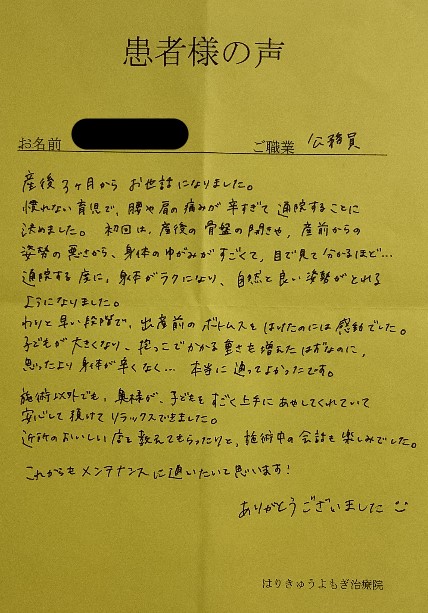 患者様の声
お名前
ご職業 公務員
産後3ヶ月から お世話になりました。
慣れない育児で、腰や肩の痛みが辛すぎて通院することに
決めました。 初回は、産後の骨盤の開きや、産前からの
姿勢の悪さから、身体のゆがみがすごくて、目で見て分かるほど…
通院する度に、身体がラクになり、自然と良い姿勢がとれる
ようになりました。
わりと早い段階で、出産前のボトムスをはけたのには感動でした。
子どもが大きくなり、抱っこでかかる重さも増えたはずなのに、
思ったより身体が辛くなく… 本当に通ってよかったです。
施術以外でも、奥様が、子どもをすごく上手にあやしてくれていて
安心して預けてリラックスできました。
近所のおいしい店を教えてもらったりと、施術中の会話も楽しみでした。
これからもメンテナンスに通いたいと思います!
ありがとうございました
はりきゅうよもぎ治療院